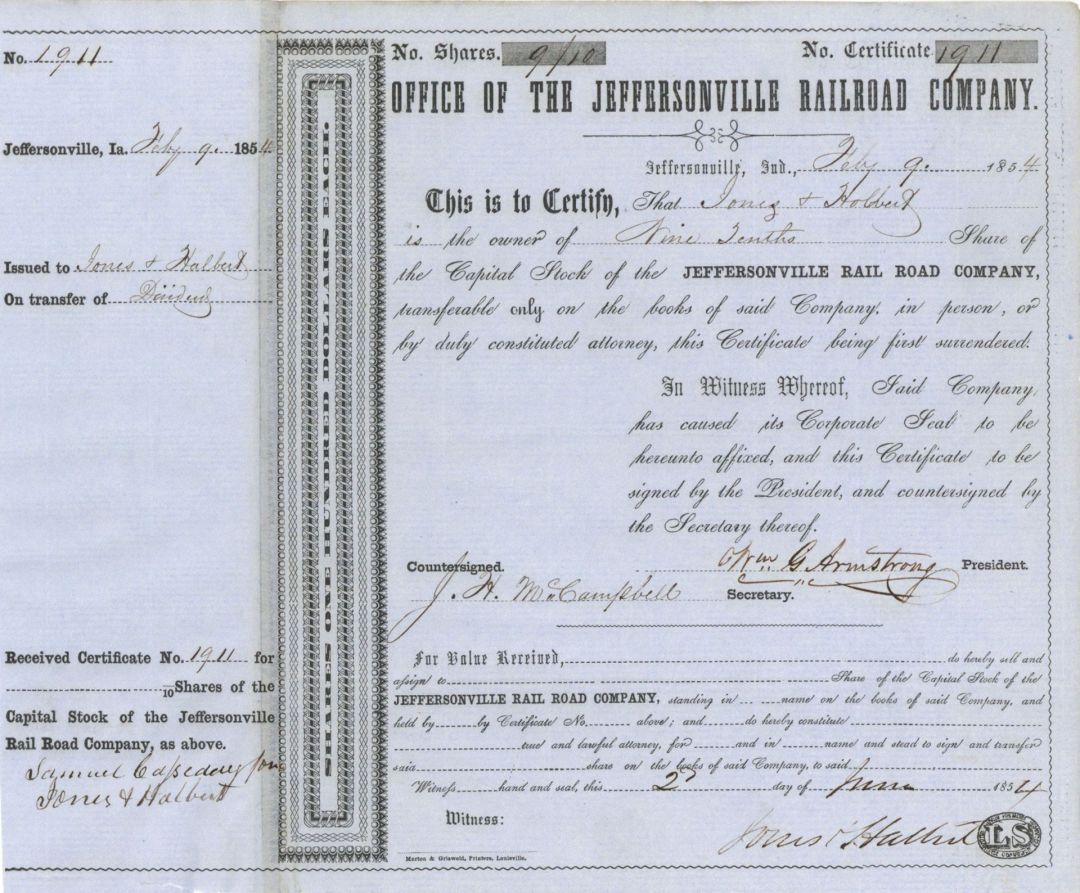 No. 1911
Jeffersonville, Ia. Feby 9. 1854
Issued to Jones & Halbert
On transfer of Dividend
Received Certificate No. 1911 for
/10 Shares of the
Capital Stock of the Jeffersonville
Rail Road Company, as above.
Samuel Casseday for
Jones & Halbert
SHARES ONE HUNDRED DOLLARS EACH.
No. Shares. 9/10 No. Certificate 1911
OFFICE OF THE JEFFERSONVILLE RAILROAD COMPANY.
Jeffersonville, Ind., Feby 9. 1854
This is to Certify, That Jones & Holbert
is the owner of Nine Tenths Share of
the Capital Stock of the JEFFERSONVILLE RAIL ROAD COMPANY,
transferable only on the books of said Company, in person, or
by duly constituted attorney, this Certificate being first surrendered.
In Witness Whereof, Said Company,
has caused its Corporate Seal to be
hereunto affixed, and this Certificate to be
signed by the President, and countersigned by
the Secretary thereof.
Wm G. Armstrong President.
Countersigned.
J. H. McCampbell Secretary.
For Value Received, do hereby sell and
assign to Share of the Capital Stock of the
JEFFERSONVILLE RAIL ROAD COMPANY, standing in name on the books of said Company, and
held by by Certificate No. above; and do hereby constitute
true and lawful attorney, for and in name and stead to sign and transfer
said share on the books of said Company, to said
Witness hand and seal, this 2d day of June 1854
Witness:
Jones & Halbert
LS
Morton & Griswold, Printers, Louisville.